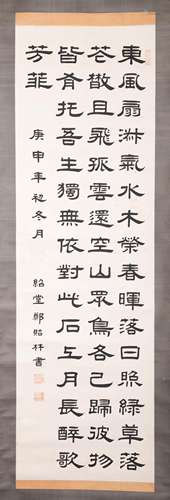 東風扇淑氣水木榮春暉落日照綠草落
花散且飛孤雲還空山眾鳥各已歸彼物
皆有托吾生獨無依對此石上月長醉歌
芳菲
庚申年初冬月
紹堂鄭貽林書